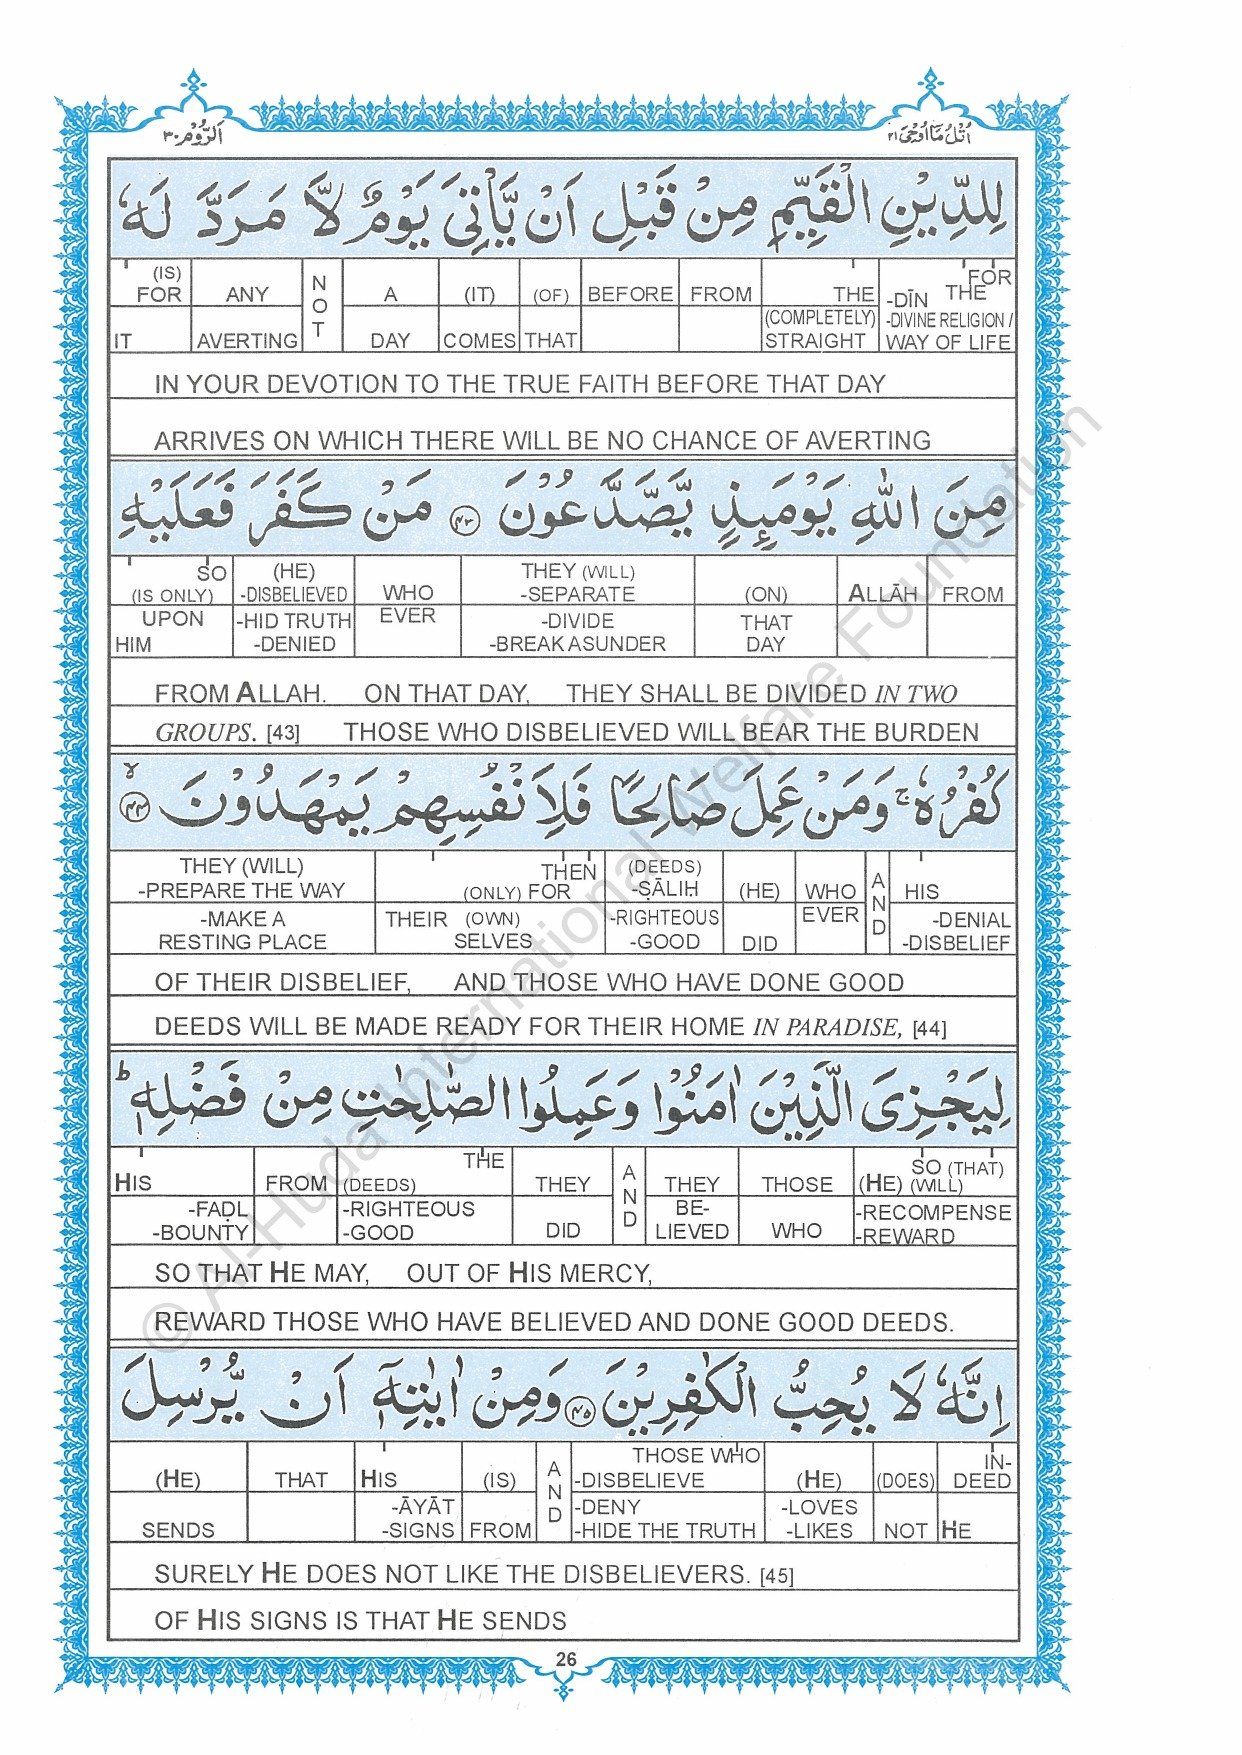 اَلرُّوْم ٣٠
اُتْلُ مَآ اُوْحِیَ ٢١
لِلدِّيْنِ الْقَيِّمِ مِنْ قَبْلِ اَنْ يَّاْتِیَ يَوْمٌ لَّا مَرَدَّ لَهٗ
(IS) FOR | ANY | NOT | A | (IT) | (OF) | BEFORE | FROM | THE | -DĪN THE FOR
IT | AVERTING | DAY | COMES | THAT | (COMPLETELY) STRAIGHT | -DIVINE RELIGION / WAY OF LIFE
IN YOUR DEVOTION TO THE TRUE FAITH BEFORE THAT DAY
ARRIVES ON WHICH THERE WILL BE NO CHANCE OF AVERTING
مِنَ اللهِ يَوْمَىِٕذٍ يَّصَّدَّعُوْنَ ٤٣ مَنْ كَفَرَ فَعَلَيْهِ
SO (IS ONLY) | (HE) -DISBELIEVED | WHO | THEY (WILL) -SEPARATE | (ON) | ALLĀH | FROM
UPON HIM | -HID TRUTH -DENIED | EVER | -DIVIDE -BREAK ASUNDER | THAT DAY
FROM ALLAH. ON THAT DAY, THEY SHALL BE DIVIDED IN TWO
GROUPS. [43] THOSE WHO DISBELIEVED WILL BEAR THE BURDEN
كُفْرُهٗ ج وَمَنْ عَمِلَ صَالِحًا فَلِاَنْفُسِهِمْ يَمْهَدُوْنَ ٤٤
THEY (WILL) -PREPARE THE WAY | THEN (ONLY) FOR | (DEEDS) -ṢĀLIḤ | (HE) | WHO | AND | HIS
-MAKE A RESTING PLACE | THEIR (OWN) SELVES | -RIGHTEOUS -GOOD | DID | EVER | -DENIAL -DISBELIEF
OF THEIR DISBELIEF, AND THOSE WHO HAVE DONE GOOD
DEEDS WILL BE MADE READY FOR THEIR HOME IN PARADISE, [44]
لِيَجْزِیَ الَّذِيْنَ اٰمَنُوْا وَعَمِلُوا الصّٰلِحٰتِ مِنْ فَضْلِهٖ ط
HIS | FROM | THE (DEEDS) | THEY | AND | THEY | THOSE | SO (THAT) (HE) (WILL)
-FAḌL -BOUNTY | -RIGHTEOUS -GOOD | DID | BE-LIEVED | WHO | -RECOMPENSE -REWARD
SO THAT HE MAY, OUT OF HIS MERCY,
REWARD THOSE WHO HAVE BELIEVED AND DONE GOOD DEEDS.
اِنَّهٗ لَا يُحِبُّ الْكٰفِرِيْنَ ٤٥ وَمِنْ اٰيٰتِهٖٓ اَنْ يُّرْسِلَ
(HE) | THAT | HIS | (IS) | AND | THOSE WHO -DISBELIEVE | (HE) | (DOES) | IN-DEED
SENDS | -ĀYĀT -SIGNS | FROM | -DENY -HIDE THE TRUTH | -LOVES -LIKES | NOT | HE
SURELY HE DOES NOT LIKE THE DISBELIEVERS. [45]
OF HIS SIGNS IS THAT HE SENDS
26
© Al-Huda International Welfare Foundation